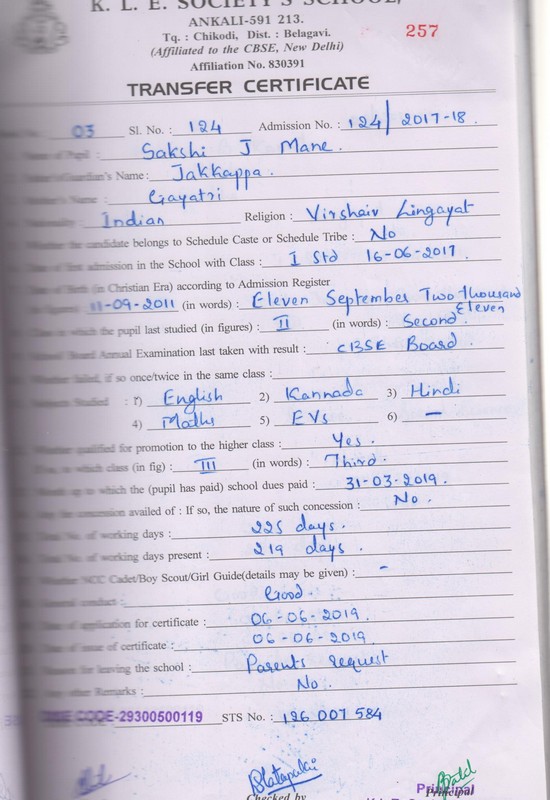 K. L. E. SOCIETY'S SCHOOL,
ANKALI-591 213.
Tq. : Chikodi, Dist. : Belagavi.
257
(Affiliated to the CBSE, New Delhi)
Affiliation No. 830391
TRANSFER CERTIFICATE
03 Sl. No. : 124 Admission No. : 124/2017-18.
Name of Pupil : Sakshi J Mane.
Guardian's Name : Jakkappa.
Name : Gayatri
Indian Religion : Virshaiv Lingayat
Whether the candidate belongs to Schedule Caste or Schedule Tribe : No
of first admission in the School with Class : I Std 16-06-2017.
of Birth (in Christian Era) according to Admission Register
11-09-2011 (in words) : Eleven September Two thousand Eleven
Class in which the pupil last studied (in figures) : II (in words) : Second.
Board Annual Examination last taken with result : CBSE Board.
Whether failed, if so once/twice in the same class :
Studied : 1) English 2) Kannada 3) Hindi
4) Maths 5) EVs 6) —
qualified for promotion to the higher class : Yes.
which class (in fig) : III (in words) : Third.
up to which the (pupil has paid) school dues paid : 31-03-2019.
concession availed of : If so, the nature of such concession : No.
No. of working days : 225 days.
No. of working days present : 219 days.
Whether NCC Cadet/Boy Scout/Girl Guide(details may be given) : -
conduct : Good.
of application for certificate : 06-06-2019.
of issue of certificate : 06-06-2019
for leaving the school : Parents request
other Remarks : No.
CODE-29300500119 STS No. : 126 007 584
Checked by Principal